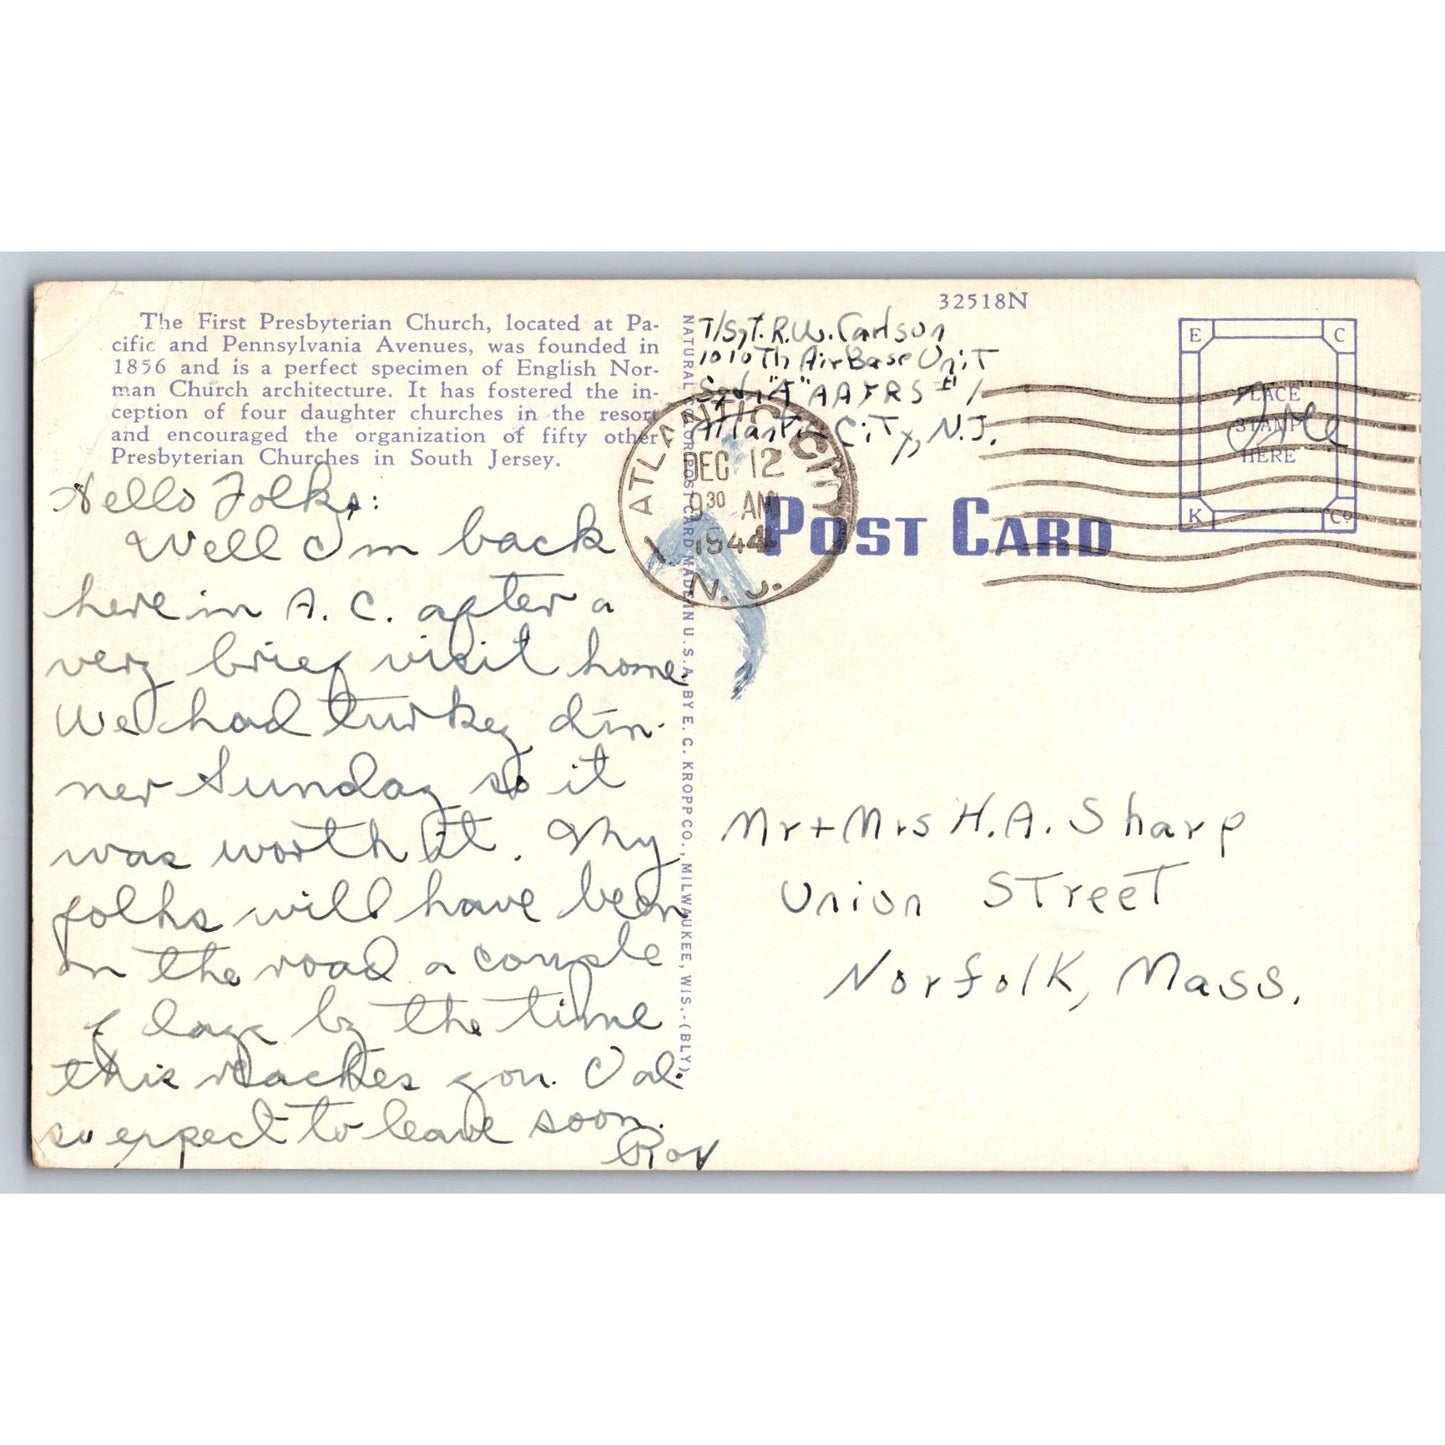 The First Presbyterian Church, located at Pa-
cific and Pennsylvania Avenues, was founded in
1856 and is a perfect specimen of English Nor-
man Church architecture. It has fostered the in-
ception of four daughter churches in the resort
and encouraged the organization of fifty other
Presbyterian Churches in South Jersey.
Hello Folks:
Well I'm back
here in A. C. after a
very brief visit home
We had turkey din-
ner Sunday so it
was worth it. My
folks will have been
on the road a couple
of days by the time
this reaches you. I al-
so expect to leave soon.
Roy
NATURAL COLOR POST CARD MADE IN U.S.A. BY E. C. KROPP CO., MILWAUKEE, WIS.-(BLY)
32518N
T/Sgt. R.W. Carlson
1010Th Air Base Unit
Sqdn "A" AAFRS #1
Atlantic City, N.J.
ATLANTIC CITY
DEC 12
9 30 AM
1944
N. J.
1
POST CARD
E C
PLACE
STAMP
HERE
K Co
Free
Mr + Mrs H. A. Sharp
Union Street
Norfolk, Mass.